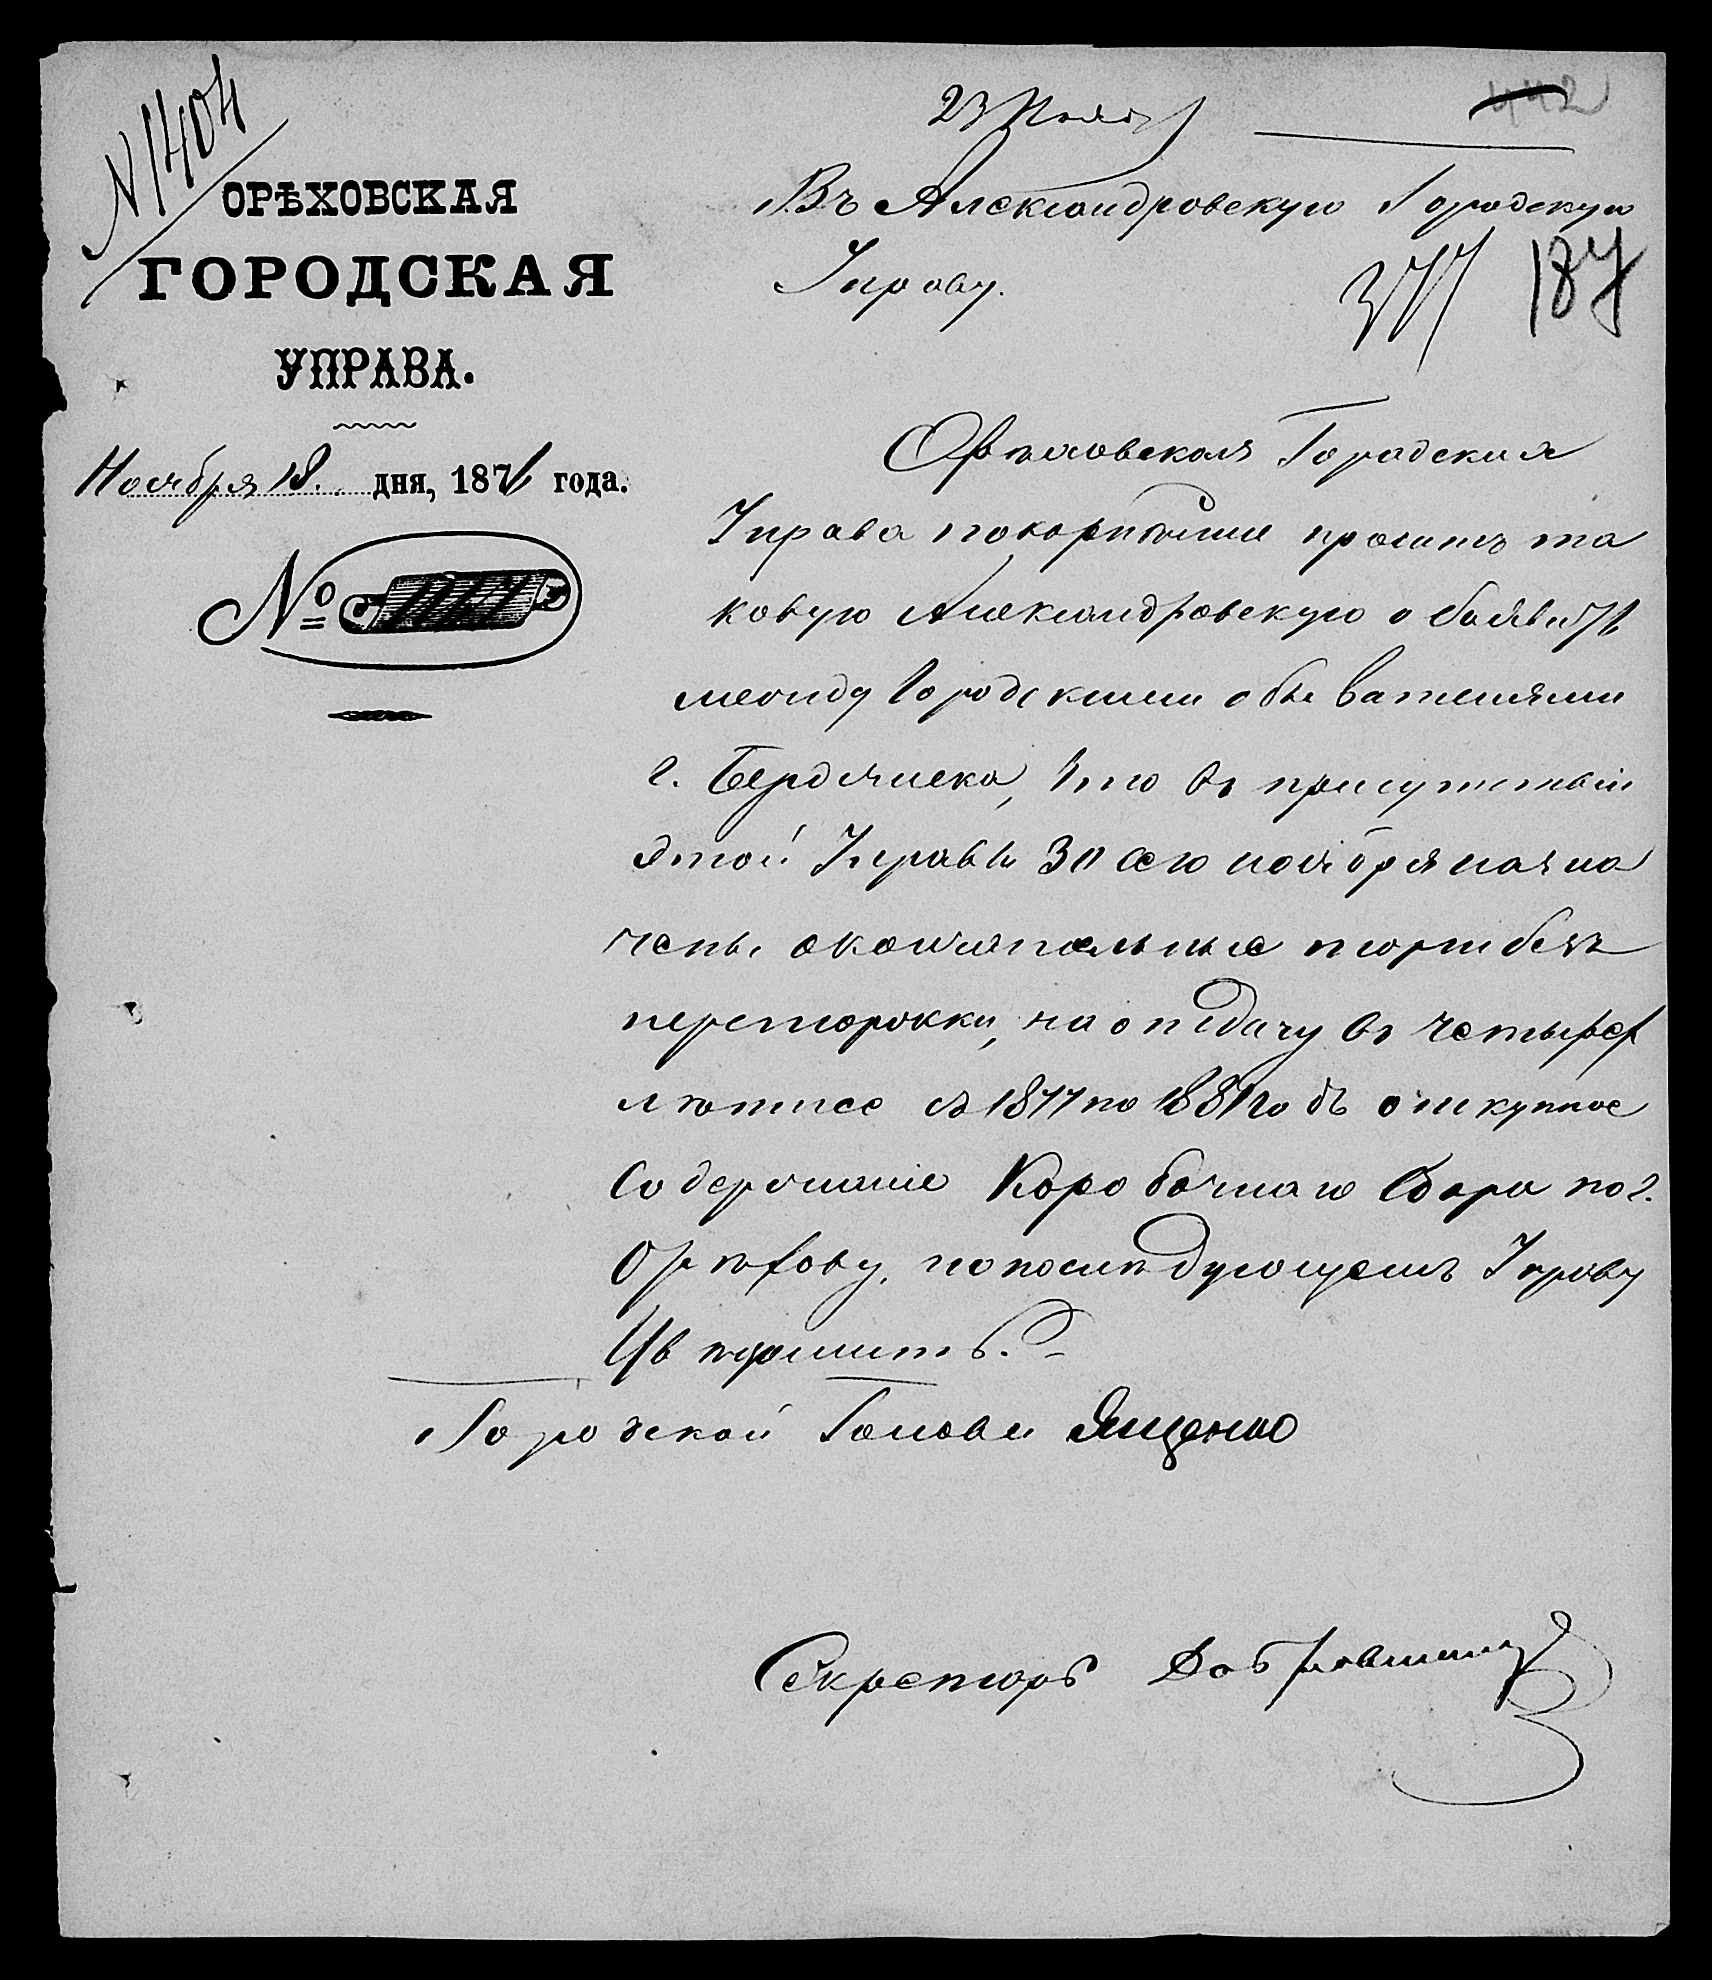 N 1404
23 Ноября
442
ОРѢХОВСКАЯ
ГОРОДСКАЯ
УПРАВА.
Ноября 18. дня, 1876 года.
№
Въ Александровскую Городскую
Управу.
377 187
Орѣховская Городская
Управа покорнѣйше проситъ та
ковую Александровскую объявить
между Городскими обывателями
г. Бердянска, что въ присутствіи
этой Управы 30 сего ноября назна
чены окончательные торги безъ
переторжки, на отдачу въ четырех
лѣтнее съ 1877 по 1881 годъ откупное
Содержаніе Коробочнаго Сбора по г.
Орѣхову, попослѣдующемъ Управу
Увѣдомить.
Городской Голова Ященко
Секретарь